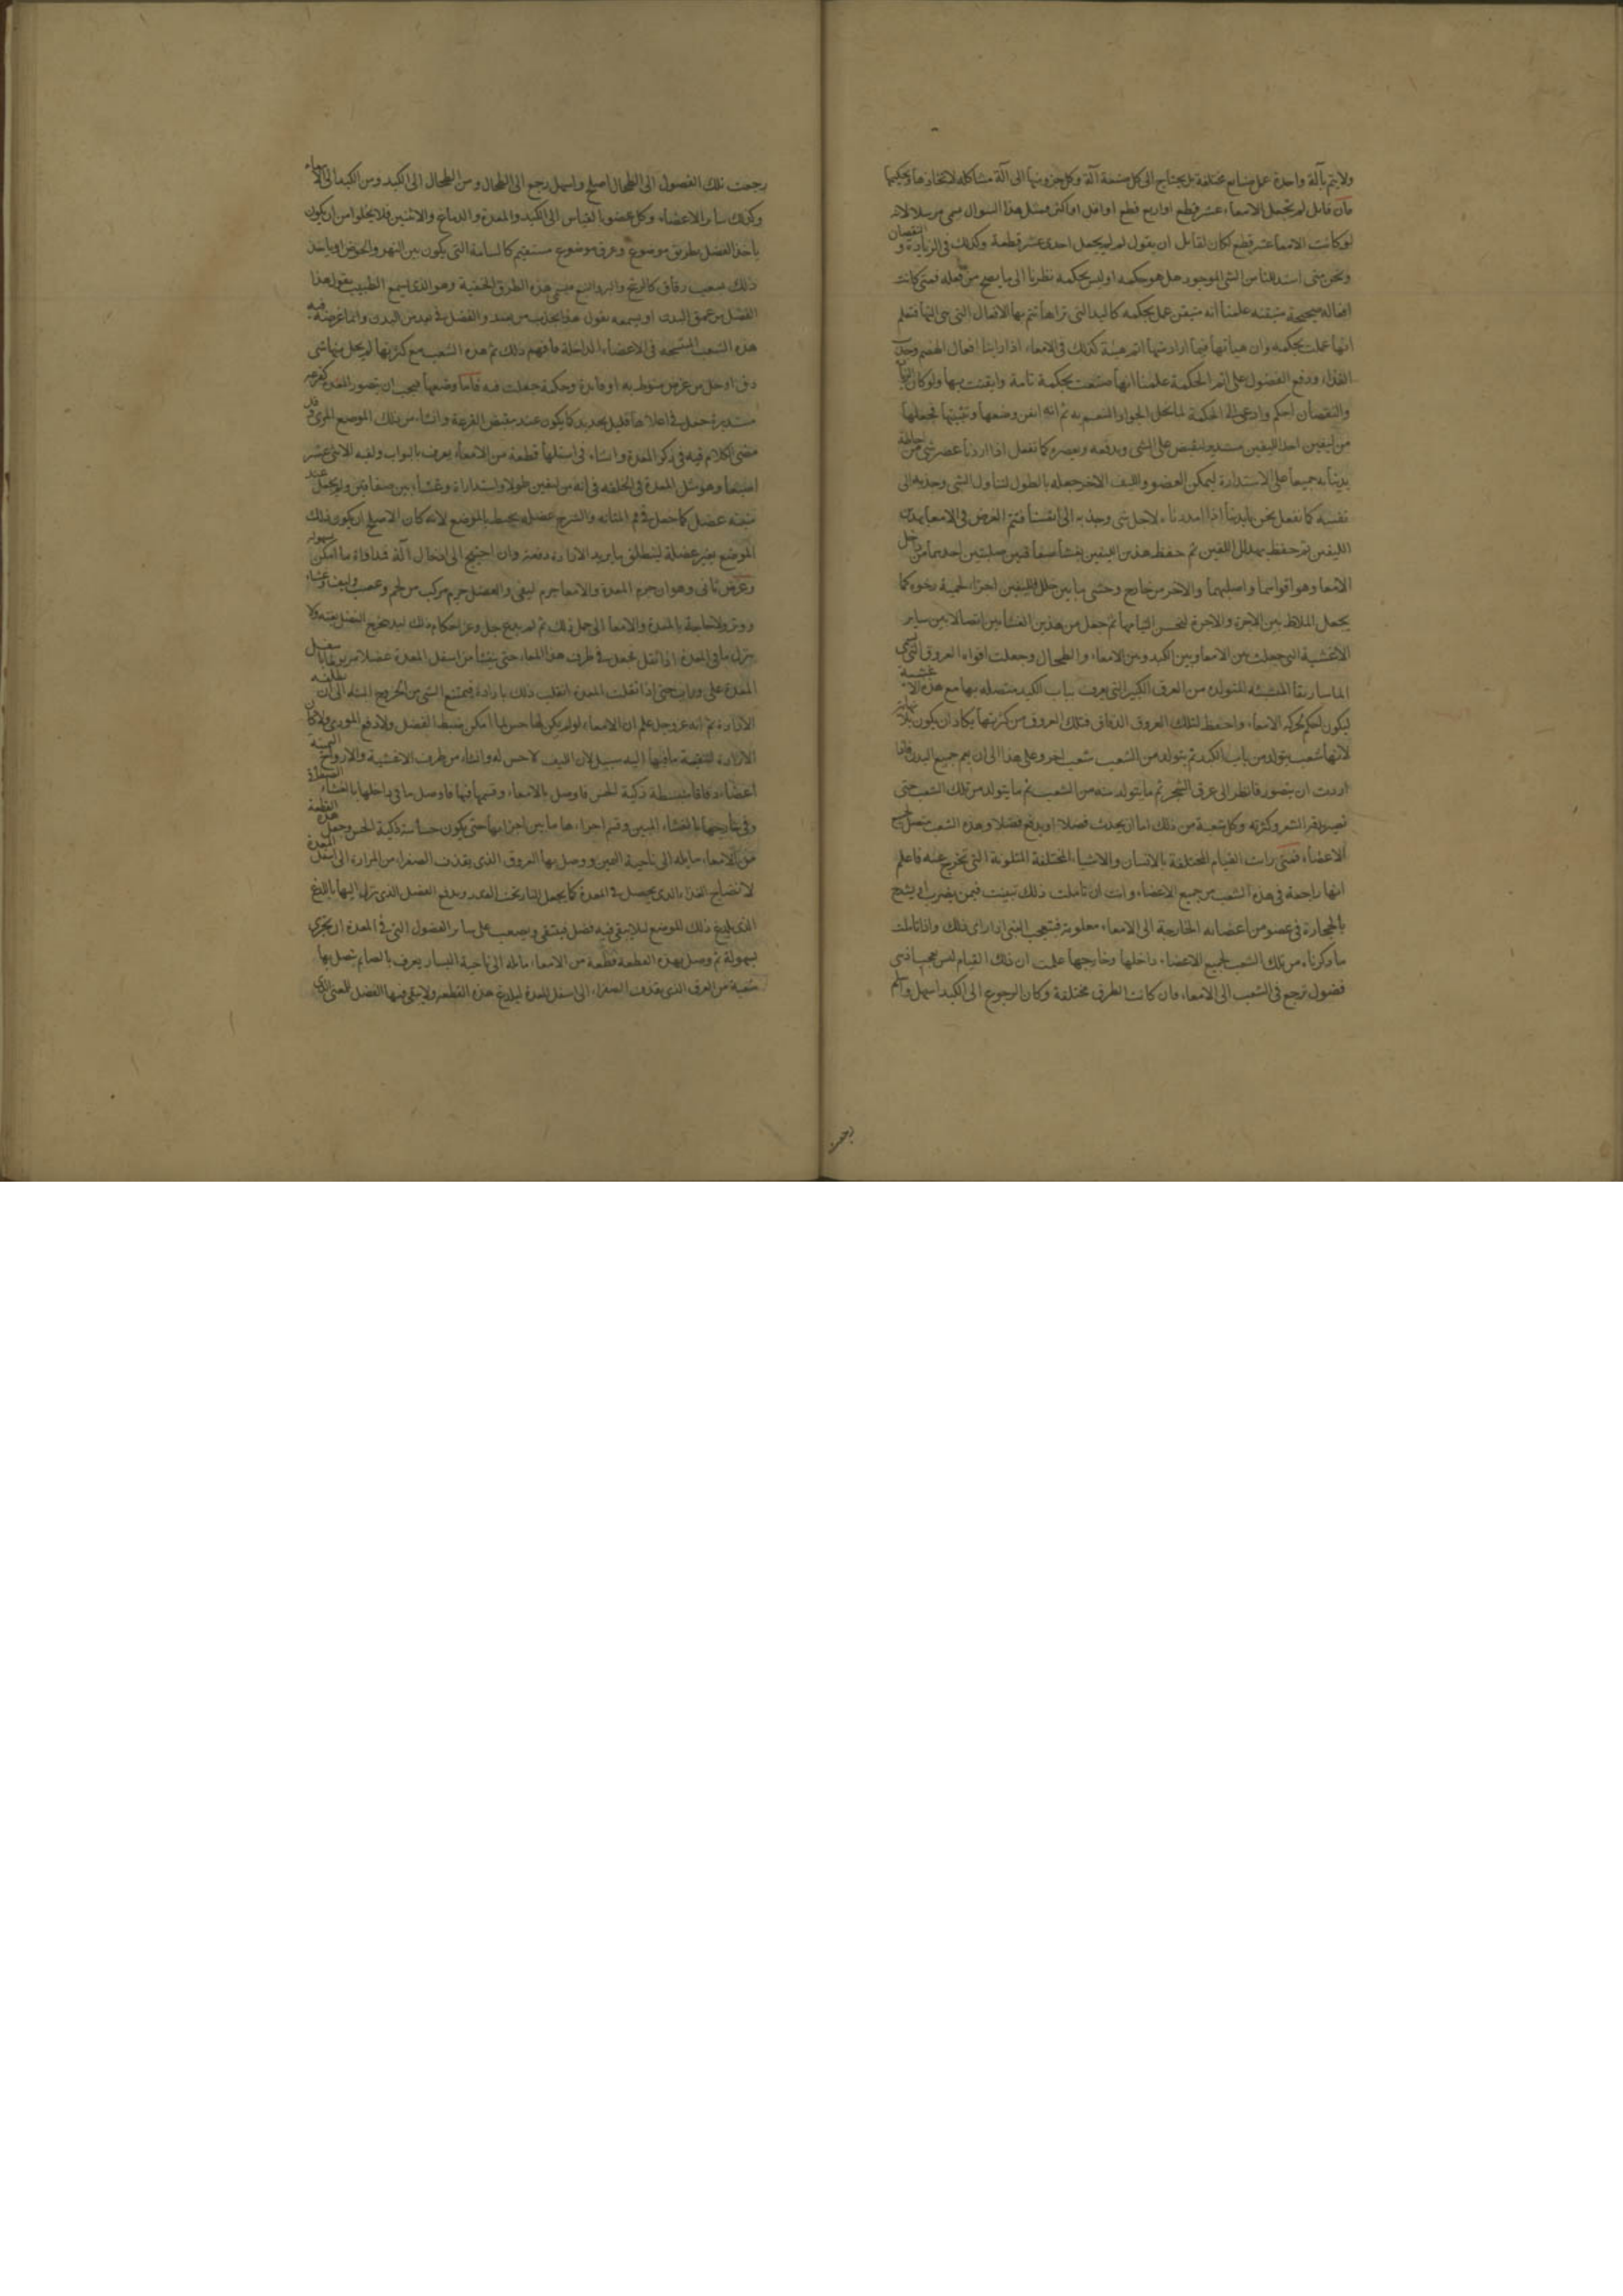 ولا يتم بآلة واحدة عمل صنايع مختلفة بل يحتاج الى كل صنعة آلة وكل جزو منها الى آلة مشاكله لاتخاذها وتحكيمها
فان قايل لم تجعل الامعاء عشر قطع او اربع قطع او اقل او اكثر فمثل هذا السوال يسمى مرسلا لانه
لو كانت الامعا عشر قطع لكان لقايل ان يقول لم لم يجعل احدى عشر قطعة وكذلك في الزيادة و النقصان
ونحن متى استدللنا من الشي الموجود هل هو حكمه او ليس بحكمه نظرنا الى ما يصح من فعله فمتى كانت
افعاله صحيحة متيقنه علمنا انه متيقن عمل بحكمه كاليد التى تراها تتم بها الافعال التى هى اليها فتعلم
انها عملت بحكمه وان هياتها فيما ارادتها اتم هيئة كذلك في الامعاء اذا راينا افعال الهضم وجذب
الغذاء ودفع الفضول على اتم الحكمة علمنا انها صنعت بحكمة تامة وايقنت بها ولو كان
والنقصان احكم وادعى الى الحكمة لما بخل الجواد المنعم به ثم انه اتقن وضعها وتثبيتها فجعلها
من ليفين احد الليفين مستديرا ليقبض على الشى ويدفعه ويعصره كما نفعل اذا اردنا عصر شى من
يدينا به جميعا على الاستدارة ليمكن العضو والليف الاخر جعله بالطول لتناول الشى وجذبه الى
نفسه كما نفعل نحن بايدينا اذا امددناه لاجل شى وجذبه الى انفسنا فتم الغرض فى الامعا بهذين
الليفين ثم حفظ هذين الليفين بغشا صفاقين صلبتين احدهما من داخل
الامعا وهو اقواهما واصلبهما والاخر من خارج وحشى ما بين خلل الليفين اجزاء لحمية رخوه كما
يجعل الملاط بين الاجرة والاجرة ليحسن التيامها ثم جعل من هذين الغشاين اتصالا بين ساير
الاغشية التى جعلت بين الامعا وبين الكبد وبين الامعاء والطحال وجعلت افواه العروق التى تسمى
الماساريقا المنبثه المتولده من العرق الكبير التى يعرف بباب الكبد متصله بها مع هذه الاغشية
ليكون احكم لحركه الامعاء واحفظ لتلك العروق الدقاق فتلك العروق من كثرتها يكاد ان يكون بلا نهاية
لانها شعب يتولد من باب الكبد ثم يتولد من الشعب شعب اخر وعلى هذا الى ان يعم جميع البدن فاذا
اردت ان يتصور فانظر الى عرق الشجر ثم ما يتولد منه من الشعب ثم ما يتولد من تلك الشعب حتى
تصير بقدر الشعر وكثرته وكل شعبة من ذلك اما ان يحدث فضلا او يدفع فضلا وهذه الشعب متصل بجميع
الاعضاء فمتى رايت القيام المختلفة بالانسان والاشياء المختلفة المتلونة التى تخرج عنه فاعلم
انها راجعة فى هذه الشعب من جميع الاعضاء وانت ان تاملت ذلك تبينت فيمن يضرب او يشدخ
بالحجارة فى عضو من اعضائه الخارجة الى الامعاء معلومة فتتعجب المتى اذا راى ذلك واذا تاملت
ما ذكرناه من تلك الشعب لجميع الاعضاء داخلها وخارجها علمت ان ذلك القيام ليس عجبا
فضول ترجع فى الشعب الى الامعاء فان كانت الطرق مختلفة وكان الرجوع الى الكبد اسهل واسلم
رجعت
رجعت تلك الفضول الى الطحال اصلح واسهل رجع الى الطحال ومن الطحال الى الكبد ومن الكبد الى الامعاء
وكذلك ساير الاعضاء وكل عضو بالقياس الى الكبد والمعدة والدماغ والانثيين فلا يخلوا من ان يكون
ياخذ الفضل بطريق موضوع وعرق موضوع مستقيم كالساقية التى يكون بين النهر والحوض او ياخذ
ذلك بشعب دقاق كالرشح والبرد التى تسمى هذه الطرق الخفية وهو الذى اسمع الطبيب يقول هذا
الفضل من عمق البدن او يسمعه يقول هذا يجذب من بعد والفضل فى بعد من البدن وانما غرضه فيه
هذه الشعب المتشعبه فى الاعضاء الداخلة فافهم ذلك ثم هذه الشعب مع كثرتها لم يخل منها شى
دق او جل من غرض منوط به او فايدة وحكمة جعلت فيه فاما وضعها فيجب ان يتصور المعدة كقرعه
مستديرة جعل فى اعلاها قليل تحديد كما يكون عند مقبض القرعة وانشاء من ذلك الموضع المرى وقد
مضى الكلام فيه فى ذكر المعدة وانشاء فى اسفلها قطعة من الامعاء يعرف بالبواب ولقبه الاثنى عشر
اصبعا وهو مثل المعدة فى الخلقه فى انه من ليفين طولا واستدارة وغشاء بين صفاقين ولم يجعل عند
منبته عضل كما جعل فى فم المثانه والشرج عضله يحيط بالموضع لانه كان الاصلح ان يكون ذلك
الموضع بغير عضلة لينطلق ما يريد الارادة دفعة وان احتيج الى ادخال آلة فداواة ما امكن بسهولة
وغرض ثانى وهو ان جرم المعدة والامعا جرم ليفى والعضل جرم مركب من لحم وعصب وليف وغشاء
ووتر ولا حاجة بالمعدة والامعا الى جمل ذلك ثم لم يدع جل وعز احكام ذلك ليدحرج الفضل بعنه
ينزل ما فى المعدة اذا ثقل فجعل فى طرف هذا المعاء حتى ينشأ من اسفل المعدة عضلا
المعدة على وراب حتى اذا نقلت المعدة انقلب ذلك بارادة فيمتنع الشى من الخروج البته الى ان تطلقه
الارادة ثم انه عز وجل علم ان الامعاء لو لم يكن لها حس لما امكن ضبط الفضل ولا دفع الموذى ولا كان
الارادة لتنقية ما فيها اليه سبيل لان الليف لا حس له وانشاء من طرف الاغشية والارواح البتة
اعضاء دقاقا منبسطة ذكية الحس فاوصل بالامعاء وقسمها فيها فاوصل ما فى داخلها بالغشاء
وفى خارجها بالغشاء المبين وقسم اجزاءها ما بين اجزائها حتى يكون حساسة ذكية الحس وجعل هذه القطعة
من الامعاء مايله الى ناحية اليمين ووصل بها العروق الذى يقذف الصفرا من المراره الى اسفل المعدة
لانضاج الغذاء الذى يحصل فى المعدة كما يجعل النار تحت القدر ويدفع الفضل الذى ينزل اليها باللذع
الذى يلدغ ذلك الموضع لئلا يبقى فيه فضل فيبقى ويصعب على ساير الفضول التى فى المعدة ان يجرى
بسهولة ثم وصل بهذه القطعة قطعة من الامعاء مايله الى ناحية اليسار يعرف بالصايم تتصل بها
شعبة من العرق الذى يقذف الصفراء الى اسفل المعدة ليلدغ هذه القطعة ولا يبقى فيها الفضل للمعنى الذى